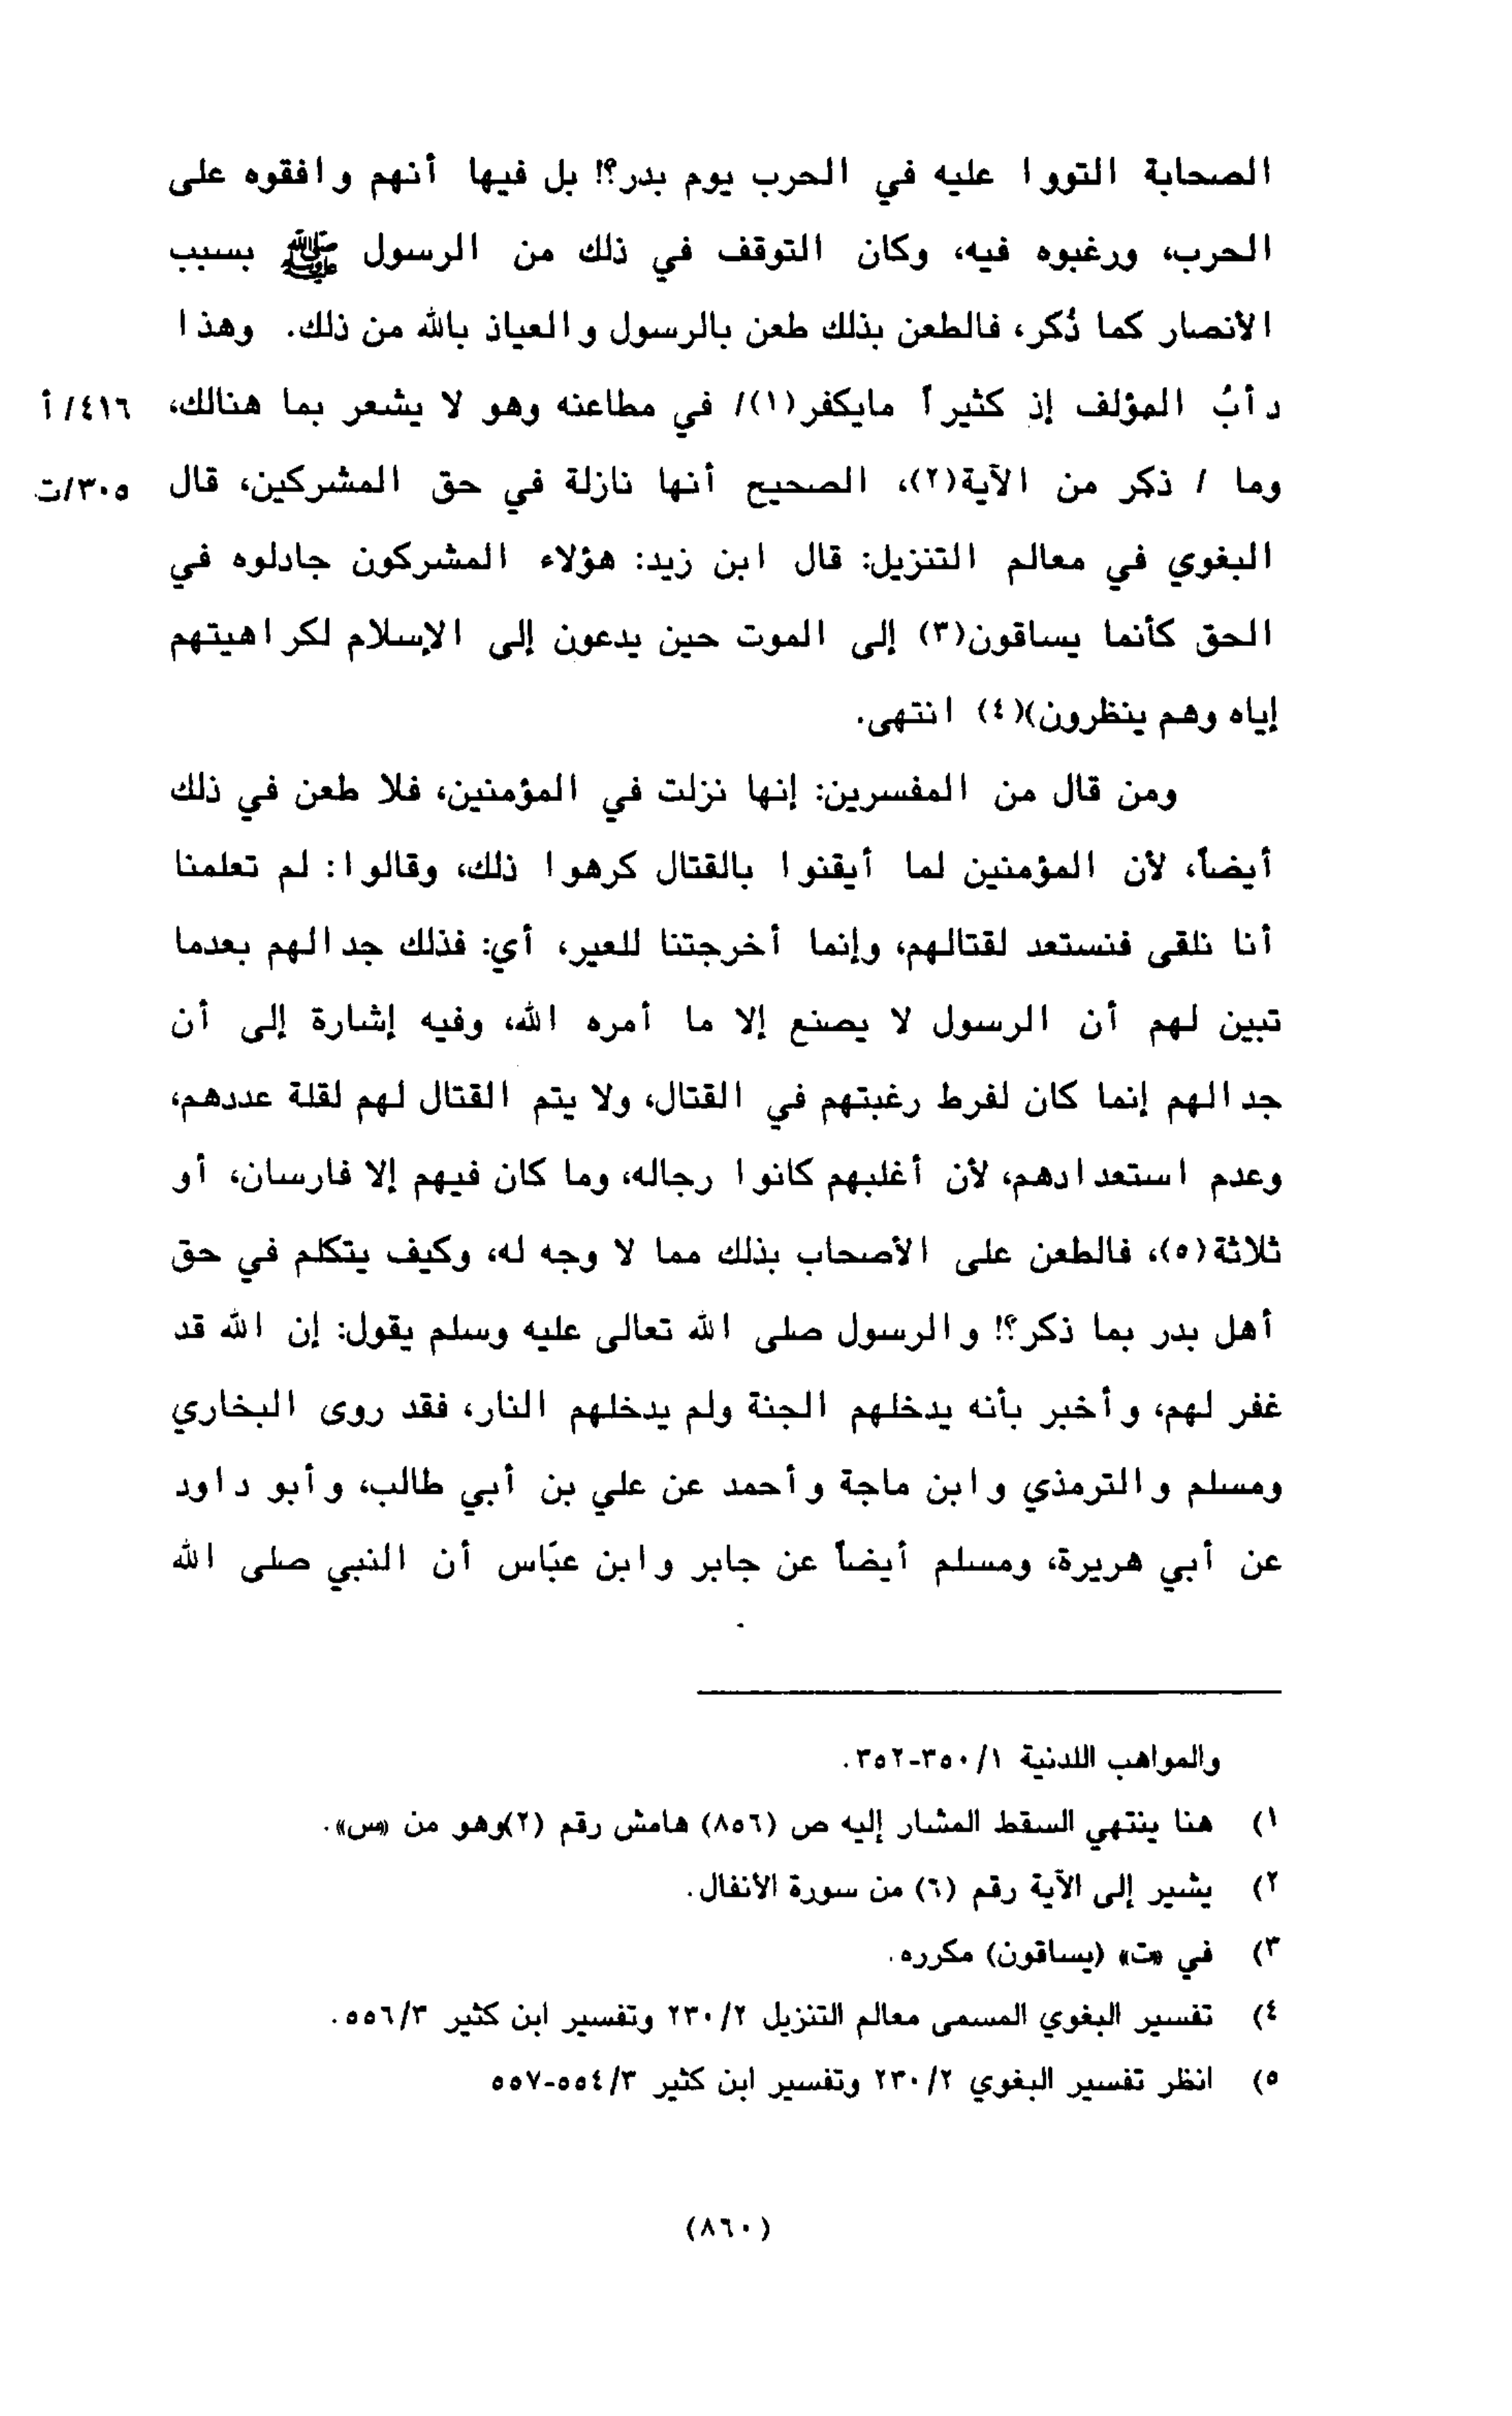 الصحابة التووا عليه في الحرب يوم بدر؟! بل فيها أنهم وافقوه على
الحرب، ورغبوه فيه، وكان التوقف في ذلك من الرسول ﷺ بسبب
الأنصار كما ذُكر، فالطعن بذلك طعن بالرسول والعياذ بالله من ذلك. وهذا
دأبُ المؤلف إذ كثيراً مايكفر(١)/ في مطاعنه وهو لا يشعر بما هنالك، ٤١٦/أ
وما / ذكر من الآية(٢)، الصحيح أنها نازلة في حق المشركين، قال ٣٠٥/ت
البغوي في معالم التنزيل: قال ابن زيد: هؤلاء المشركون جادلوه في
الحق كأنما يساقون(٣) إلى الموت حين يدعون إلى الإسلام لكراهيتهم
إياه وهم ينظرون)(٤) انتهى.
ومن قال من المفسرين: إنها نزلت في المؤمنين، فلا طعن في ذلك
أيضاً، لأن المؤمنين لما أيقنوا بالقتال كرهوا ذلك، وقالوا: لم تعلمنا
أنا نلقى فنستعد لقتالهم، وإنما أخرجتنا للعير، أي: فذلك جدالهم بعدما
تبين لهم أن الرسول لا يصنع إلا ما أمره الله، وفيه إشارة إلى أن
جدالهم إنما كان لفرط رغبتهم في القتال، ولا يتم القتال لهم لقلة عددهم،
وعدم استعدادهم، لأن أغلبهم كانوا رجاله، وما كان فيهم إلا فارسان، أو
ثلاثة(٥)، فالطعن على الأصحاب بذلك مما لا وجه له، وكيف يتكلم في حق
أهل بدر بما ذكر؟! والرسول صلى الله تعالى عليه وسلم يقول: إن الله قد
غفر لهم، وأخبر بأنه يدخلهم الجنة ولم يدخلهم النار، فقد روى البخاري
ومسلم والترمذي وابن ماجة وأحمد عن علي بن أبي طالب، وأبو داود
عن أبي هريرة، ومسلم أيضاً عن جابر وابن عبّاس أن النبي صلى الله
والمواهب اللدنية ١/٣٥٠-٣٥٢.
١) هنا ينتهي السقط المشار إليه ص (٨٥٦) هامش رقم (٢)وهو من «س».
٢) يشير إلى الآية رقم (٦) من سورة الأنفال.
٣) في «ت» (يساقون) مكرره.
٤) تفسير البغوي المسمى معالم التنزيل ٢/٢٣٠ وتفسير ابن كثير ٣/٥٥٦.
٥) انظر تفسير البغوي ٢/٢٣٠ وتفسير ابن كثير ٣/٥٥٤-٥٥٧
(٨٦٠)